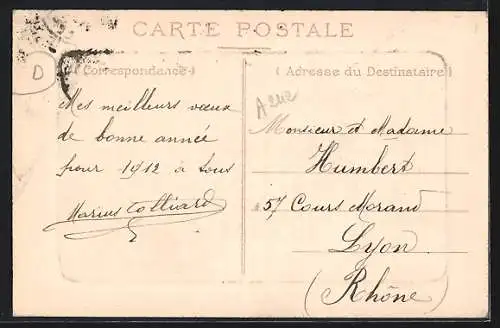 CARTE POSTALE
D
( Correspondance )
( Adresse du Destinataire )
A 242
Mes meilleurs vœux
de bonne année
pour 1912 à tous
Marius
Monsieur et Madame
Humbert
57 Cours Morand
Lyon
(Rhône)